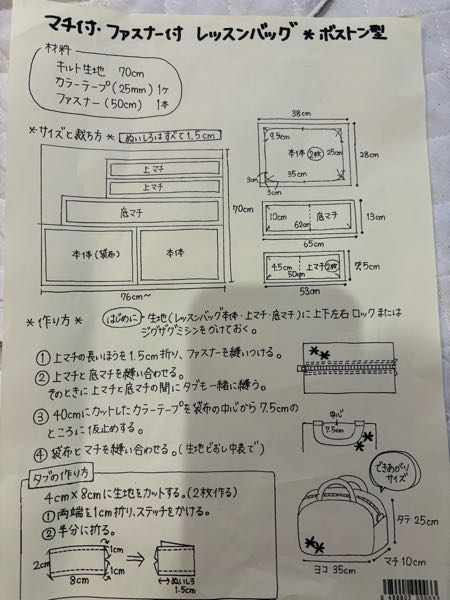 マチ付・ファスナー付 レッスンバッグ * ボストン型
材料
キルト生地 70cm
カラーテープ(25mm) 1ケ
ファスナー(50cm) 1本
*サイズと裁ち方* ぬいしろはすべて1.5cm
上マチ
上マチ
底マチ
本体(袋布)
本体
70cm
76cm〜
38cm
本体(2枚)
25cm
35cm
3cm
3cm
28cm
10cm
底マチ
62cm
13cm
65cm
4.5cm
上マチ(2枚)
50cm
7.5cm
53cm
*作り方* はじめに 生地(レッスンバッグ本体・上マチ・底マチ)に上下左右ロックまたは
ジグザグミシンをかけておく。
①上マチの長いほうを1.5cm折り、ファスナーを縫いつける。
②上マチと底マチを縫い合わせる。
そのときに上マチと底マチの間にタブも一緒に縫う。
③40cmにカットしたカラーテープを袋布の中心から7.5cmの
ところに仮止めする。
④袋布とマチを縫い合わせる。(生地どおし中表で)
中心
7.5cm
タブの作り方
4cm×8cmに生地をカットする。(2枚作る)
①両端を1cm折り、ステッチをかける。
②半分に折る。
2cm
8cm
1cm
1cm
ぬいしろ
1.5cm
できあがり
サイズ
タテ 25cm
マチ 10cm
ヨコ 35cm